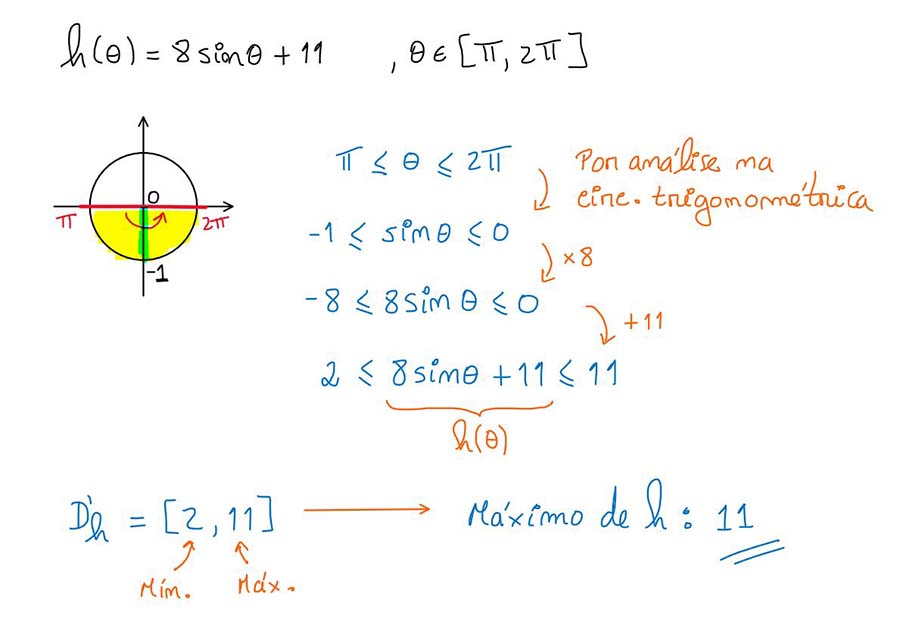 h(θ) = 8 sinθ + 11 , θ ∈ [π, 2π]
0
π 2π
-1
π ≤ θ ≤ 2π
Por análise na
circ. trigonométrica
-1 ≤ sinθ ≤ 0
×8
-8 ≤ 8 sin θ ≤ 0
+11
2 ≤ 8 sinθ + 11 ≤ 11
h(θ)
D'h = [2, 11] Máximo de h : 11
Mín. Máx.